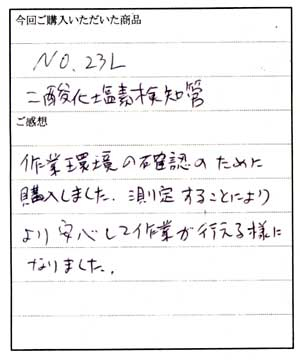 今回ご購入いただいた商品
NO.23L
二酸化塩素検知管
ご感想
作業環境の確認のために
購入しました. 測定することにより
より安心して作業が行える様に
なりました.